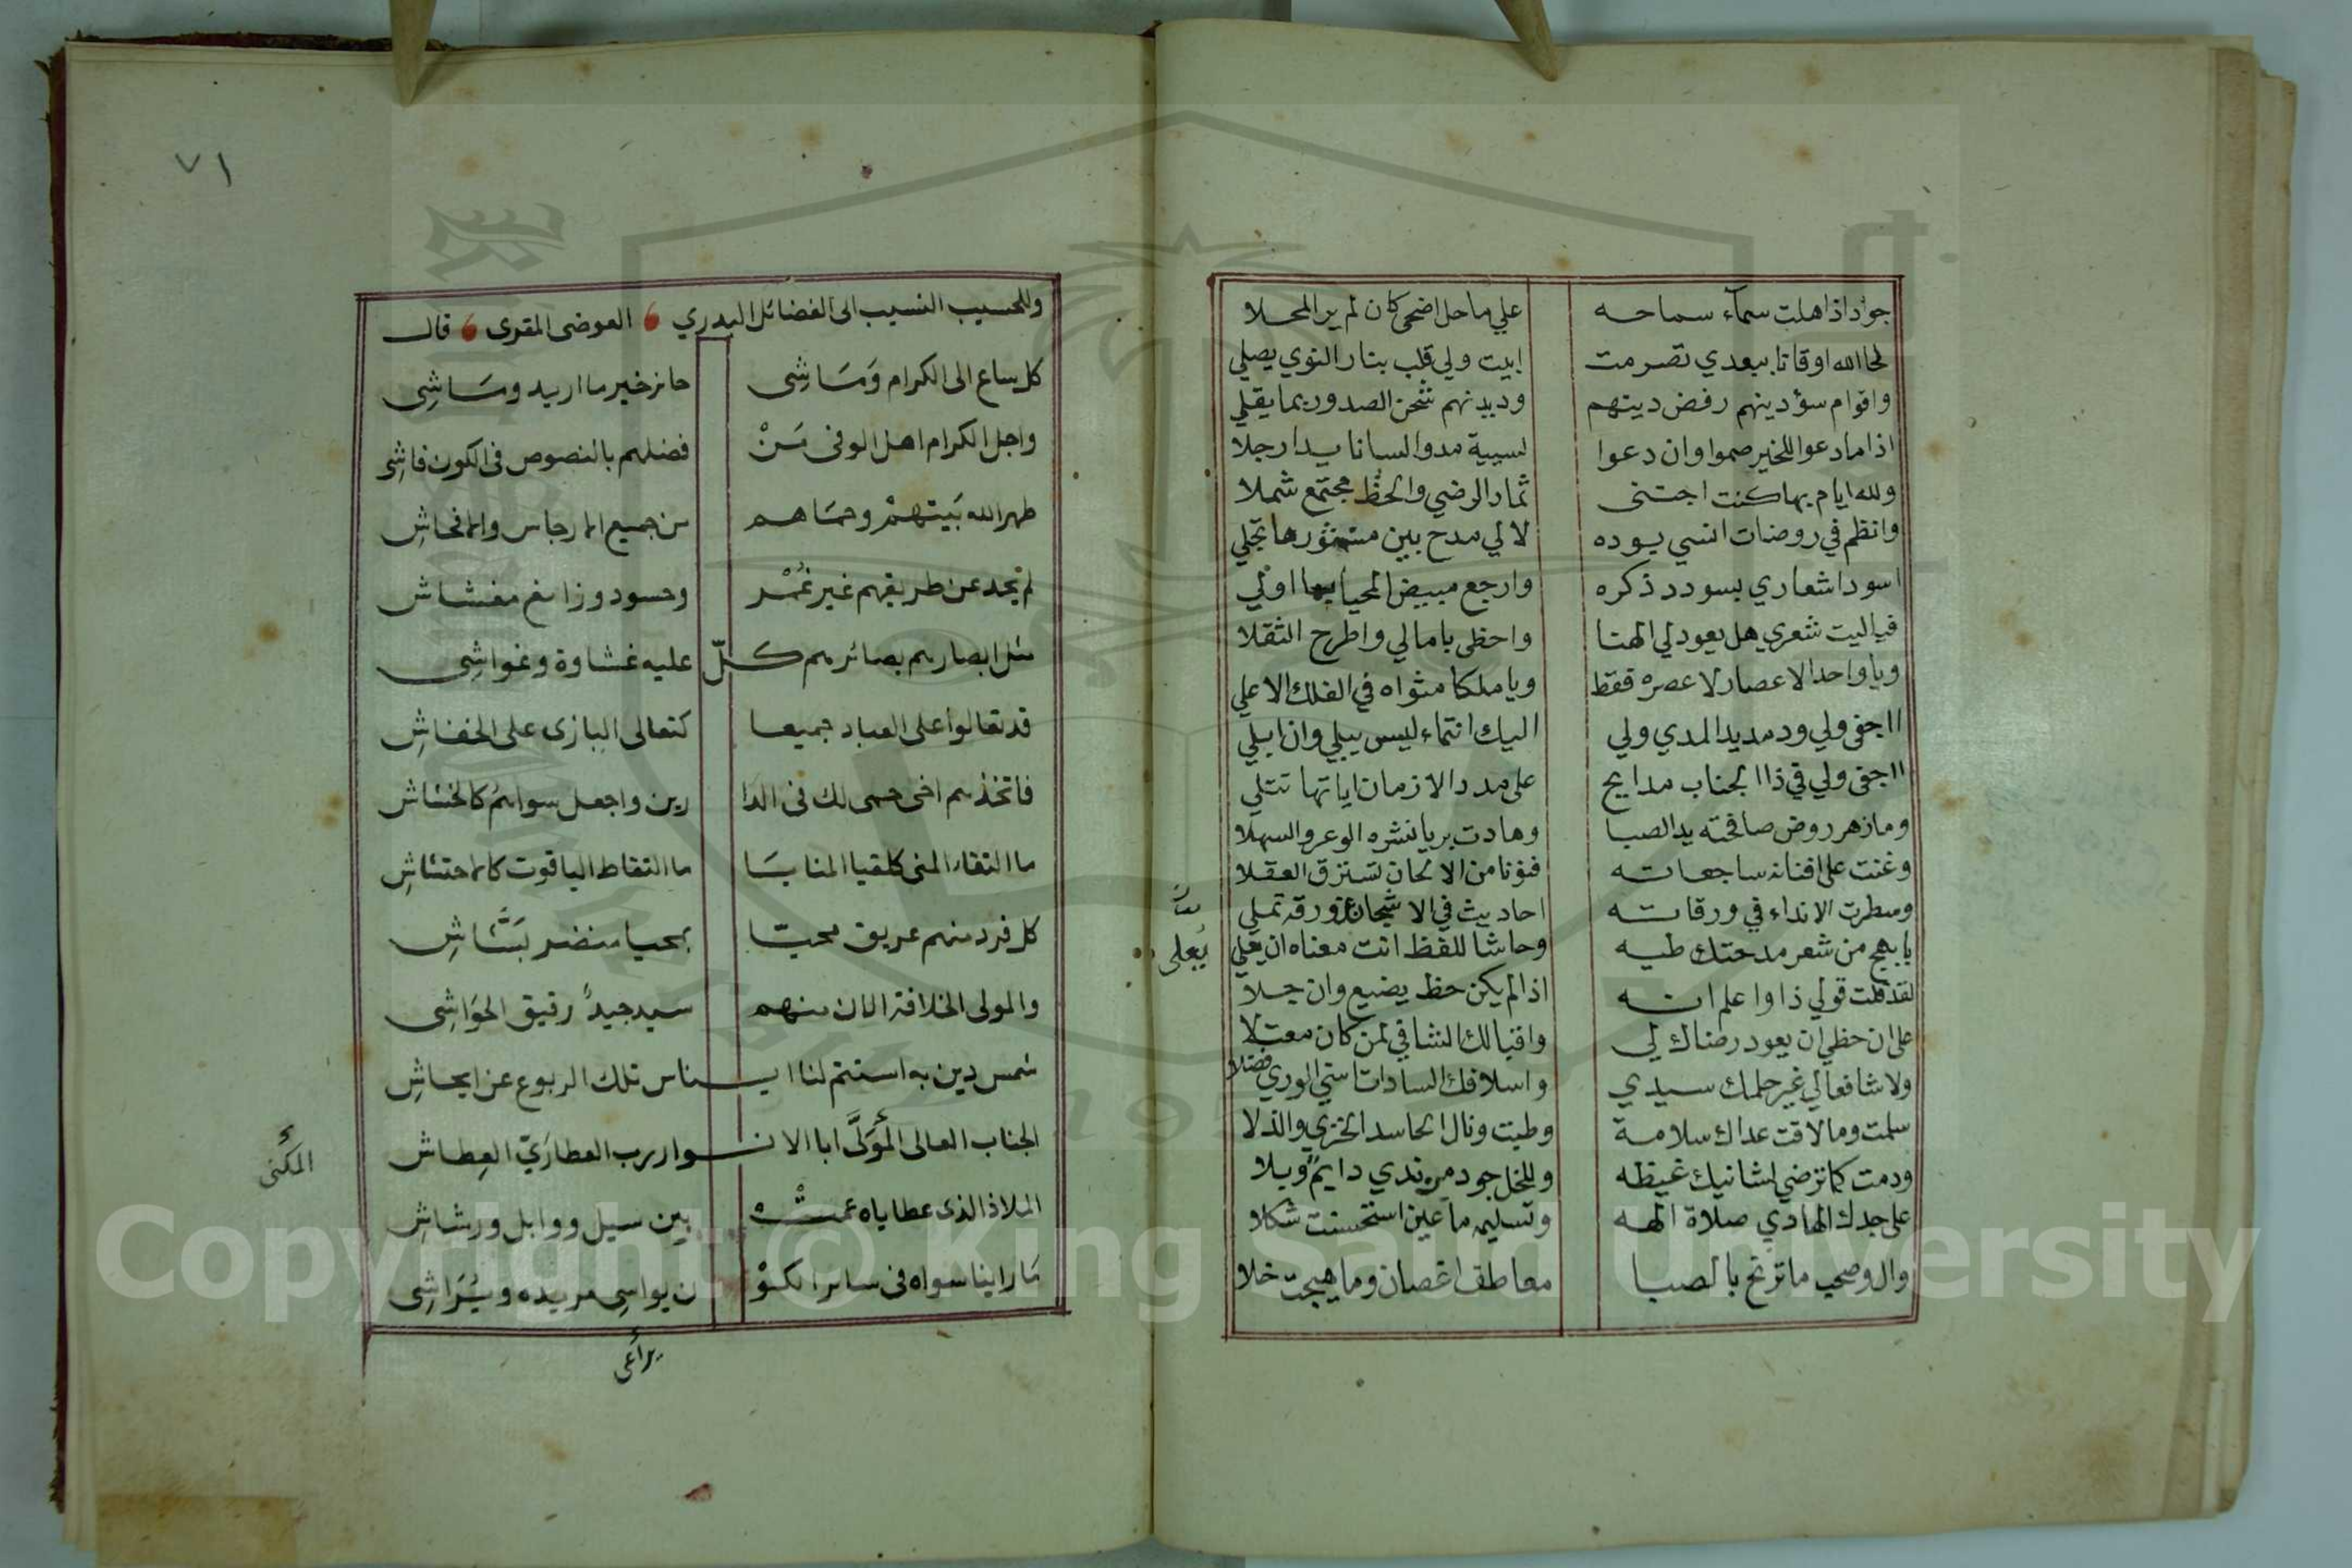 جواد اذا هلت سمآء سماحه على ما حل اضحى كان لم ير المحلا
لحا الله اوقاتا ببعدي تصرمت ابيت ولي قلب بنار النوي يصلي
واقوام سؤ دينهم رفض دينهم وديدنهم شحن الصدور بما يقلي
اذا ما دعوا للخير صموا وان دعوا لسيية مدوا لسانا يدا رجلا
ولله ايام بها كنت اجتنى ثمار الرضي والحظ مجتمع شملا
وانظم في روضات انسي بوده لالي مدح بين منثورها تجلي
اسود اشعاري بسودد ذكره وارجع مبيض المحيا بها اولي
فياليت شعري هل يعود لي الهنا واحظى بامالي واطرح الثقلا
ويا واحد الاعصار لا عصره فقط ويا ملكا مثواه في الفلك الاعلي
ااجفى ولي ود مديد المدي ولي اليك انتماء ليس يبلي وان ابلي
ااجفى ولي في ذا الجناب مدايح على مدد الازمان اياتها تتلي
وما زهر روض صافحته يد الصبا وهادت بريا نشره الوعر والسهلا
وغنت على افنانه ساجعاته فنونا من الالحان تسترق العقلا
وسطرت الانداء في ورقاته احاديث في الاشجان عن ورقه تملي
بابهج من شعر مدحتك طيه وحاشا للفظ انت معناه ان يقلي
لقد قلت قولي ذا واعلم انه اذا لم يكن حظ يضيع وان جلا
على ان حظي ان يعود رضاك لي واقبالك الشافي لمن كان معتلا
ولا شافعا لي غير حلمك سيدي واسلافك السادات ستي الوري فضلا
سلمت وما لاقت عداك سلامة وطبت ونال الحاسد الخزي والذلا
ودمت كما ترضي لشانيك غيظه وللخل جود من ندي دايم وبلا
على جدك الهادي صلاة الهه وتسليم ما عين استحسنت شكلا
وال وصحب ما ترنح بالصبا معاطف اغصان وما هيجت خلا
يعلى
٧١
وللحسيب النسيب الى الفضائل البدري العوضى المقرى قال
كل ساع الى الكرام وماشى حائز خير ما اريد وماشى
واجل الكرام اهل الوفى من فضلهم بالنصوص فى الكون فاشى
طهر الله بيتهم وحماهم من جميع الارجاس والافحاش
لم يحد عن طريقهم غير غمر وحسود وزائغ مغشاش
مثل ابصارهم بصائرهم كل عليه غشاوة وغواشى
قد تعالوا على العباد جميعا كتعالى البازى على الخفاش
فاتخذهم اخى حمى لك فى الدا رين واجعل سواهم كالخشاش
ما التقاء المنى كلقيا المنايا ما التقاط الياقوت كالاحتشاش
كل فرد منهم عريق محيا بمحيا منضر بشاش
والمولى الخلافة الان منهم سيد جيد رقيق الحواشى
شمس دين به استتم لنا ايناس تلك الربوع عن ايحاش
الجناب العالى المولى ابا الانوار رب العطاري العطاش
الملاذ الذى عطاياه عمت بين سيل ووابل ورشاش
ما راينا سواه فى سائر الكو ن يواسى مريده ويراشى
المكنى
يراعى
Copyright © King Saud University